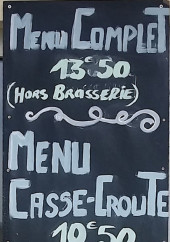 MENU COMPLET
13€50
(HORS BRASSERIE)
MENU
CASSE-CROUTE
10€50